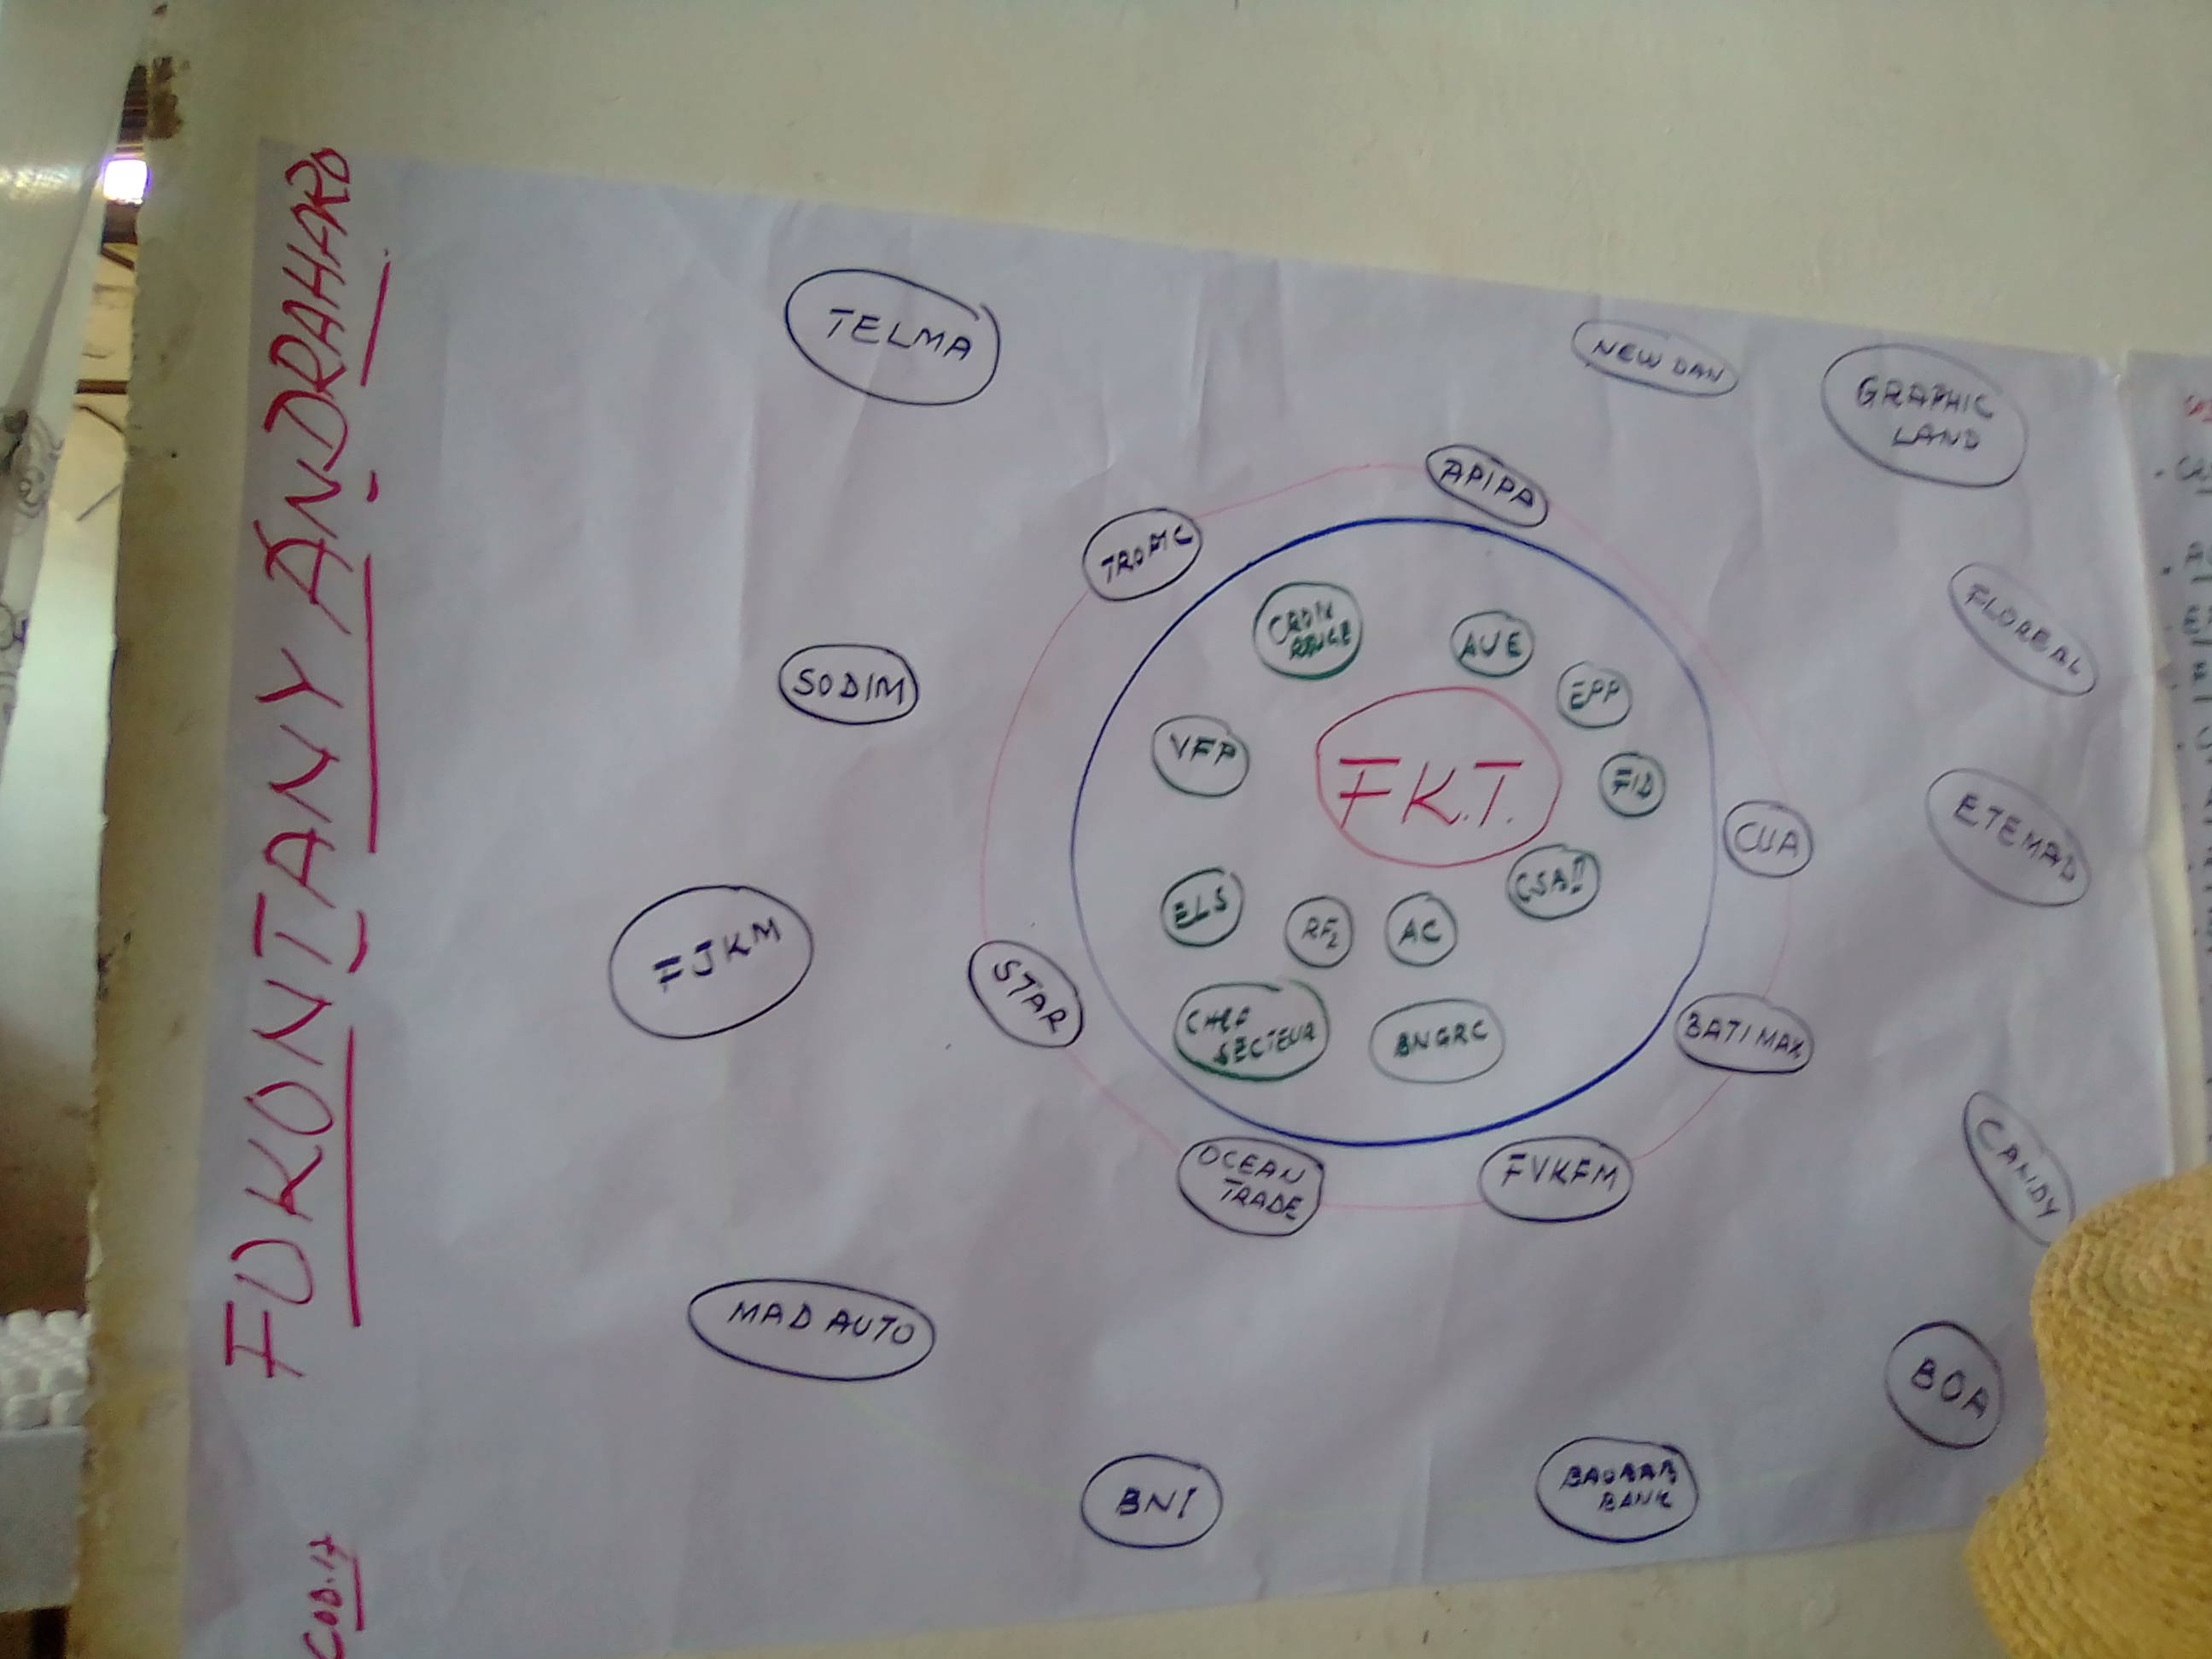 FOKONTANY ANDRAHARO
COD.17
TELMA
NEW DAN
GRAPHIC
LAND
APIPA
TROPIC
FLOREAL
CROIX
ROUGE
AUE
EPP
SODIM
VFP
F.K.T.
FID
CUA
ETEMAD
ELS
RF2
AC
CSBII
FJKM
STAR
CHEF
SECTEUR
BNGRC
BATIMAX
OCEAN
TRADE
FVKFM
CANDY
MAD AUTO
BOA
BNI
BAOBAB
BANK